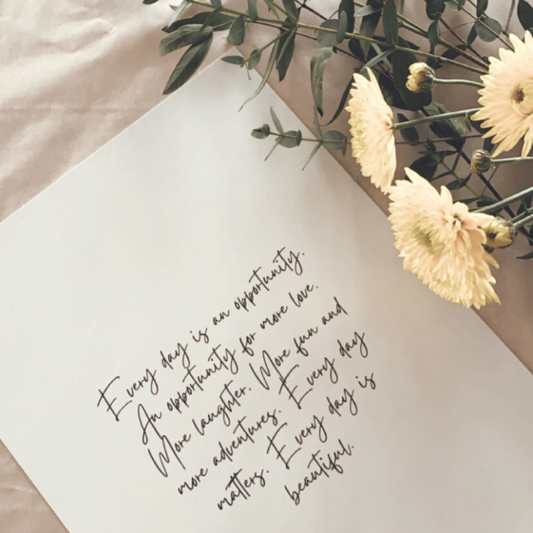 Every day is an opportunity.
An opportunity for more love.
More laughter. More fun and
more adventures. Every day
matters. Every day is
beautiful.